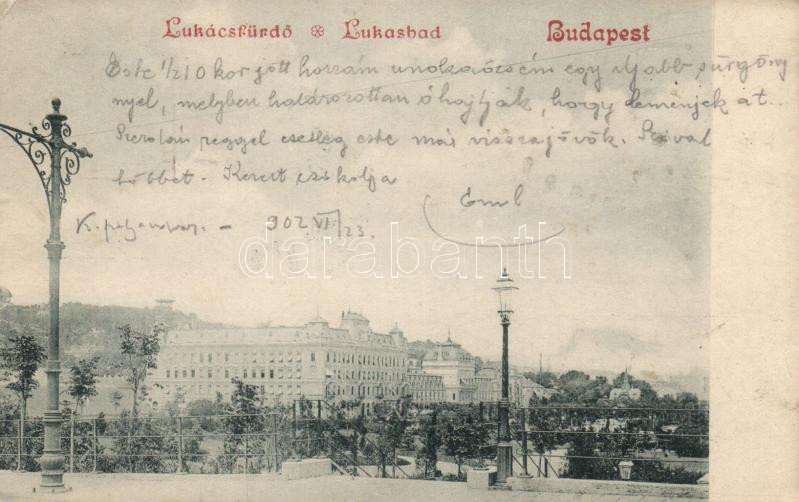 Lukácsfürdő Lukasbad Budapest
Este 1/2 10 kor jött hozzám unokaöcsém egy újabb sürgöny
nyel, melyben határozottan óhajtják, hogy lemenjek át...
Szerdán reggel esetleg este már visszajövök. Szóval
többet. Kezeit csókolja
Emil
902 VI/23.
darabanth